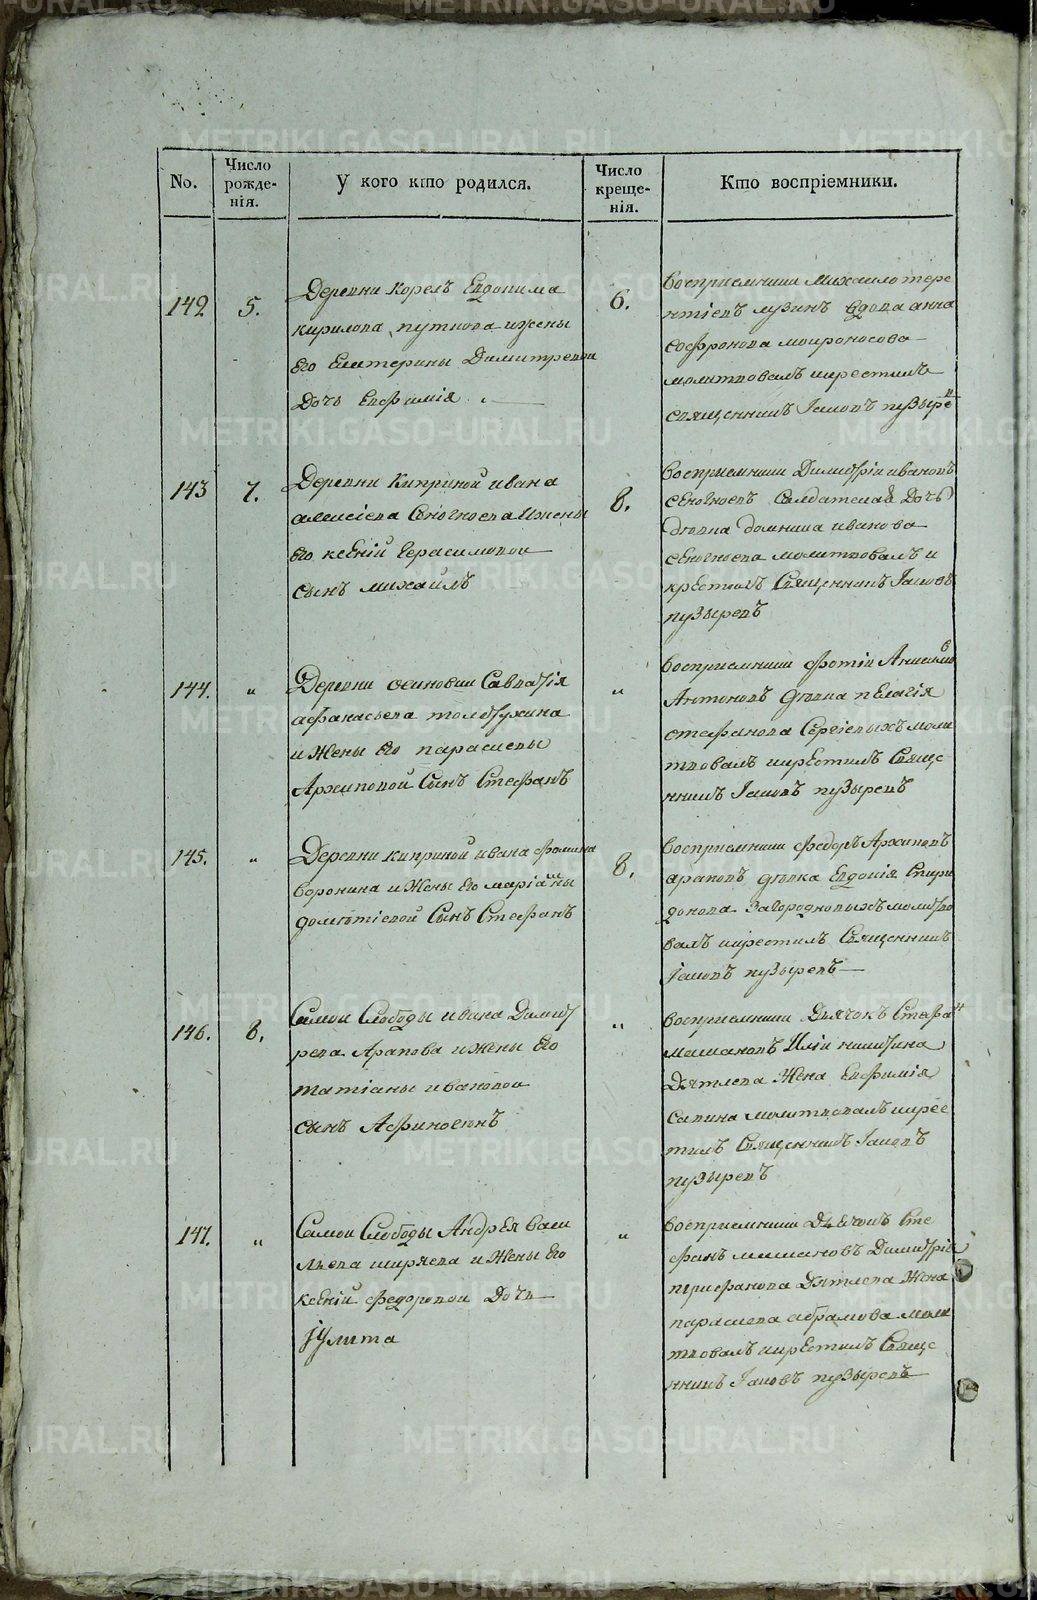 No.
Число рожде-нія.
У кого кто родился.
Число креще-нія.
Кто воспріемники.
142
5.
Деревни Корелъ Евдокима
кирилова путкова и жены
Его Екатерины Димитревои
Дочь Евфимія
6.
воспріемники Михаило тере
нтіевъ лузинъ вдова анна
софронова
молитвовалъ икрестилъ
священникъ Іаковъ пузыревъ
143
7.
Деревни Киприной ивана
алексіева Сѣногноева Ижены
Его ксеніи Герасимовои
сынъ михаилъ
8.
воспріемники Димитріи ивановъ
сѣногноевъ Салдатская Дочь
дѣвка домника иванова
сѣногноева молитвовалъ и
крестилъ Священникъ Іаковъ
пузыревъ
144.
"
Деревни осиновки Савватія
афанасьева толстухина
и Жены Его параскевы
Архиповой Сынъ Стефанъ
"
воспріемники фотіи Анисимо
Антоновъ дѣвка пелагія
стефанова Сергіевыхъ моли
твовалъ икрестилъ Священ
никъ Іаковъ пузыревъ
145.
"
Деревни киприной ивана фомина
воронина и Жены Его маріамны
дометіевой Сынъ Стефанъ
8.
воспріемники федоръ Архиповъ
араповъ дѣвка Евдокія Спири
донова Загородновыхъ молитво
валъ икрестилъ Священникъ
Іаковъ пузыревъ
146.
8.
Самои Слободы ивана Димит
рева Арапова и Жены Его
татіаны ивановои
сынъ Афиногенъ
"
воспріемники Дьячокъ Стефан
мешановъ Иліи никитина
Дятлева Жена Евфимія
савина молитвовалъ икрес
тилъ Священникъ Іаковъ
пузыревъ
147.
"
Самои Слободы Андрея васи
льева ширяева и Жены Его
ксеніи федоровои Дочь
Іулитта
"
воспріемники Дьячокъ Сте
фанъ мешановъ Димитрія
перифанова Дятлева Жена
параскева абрамова моли
твовалъ икрестилъ Священ
никъ Іаковъ пузыревъ
METRIKI.GASO-URAL.RU